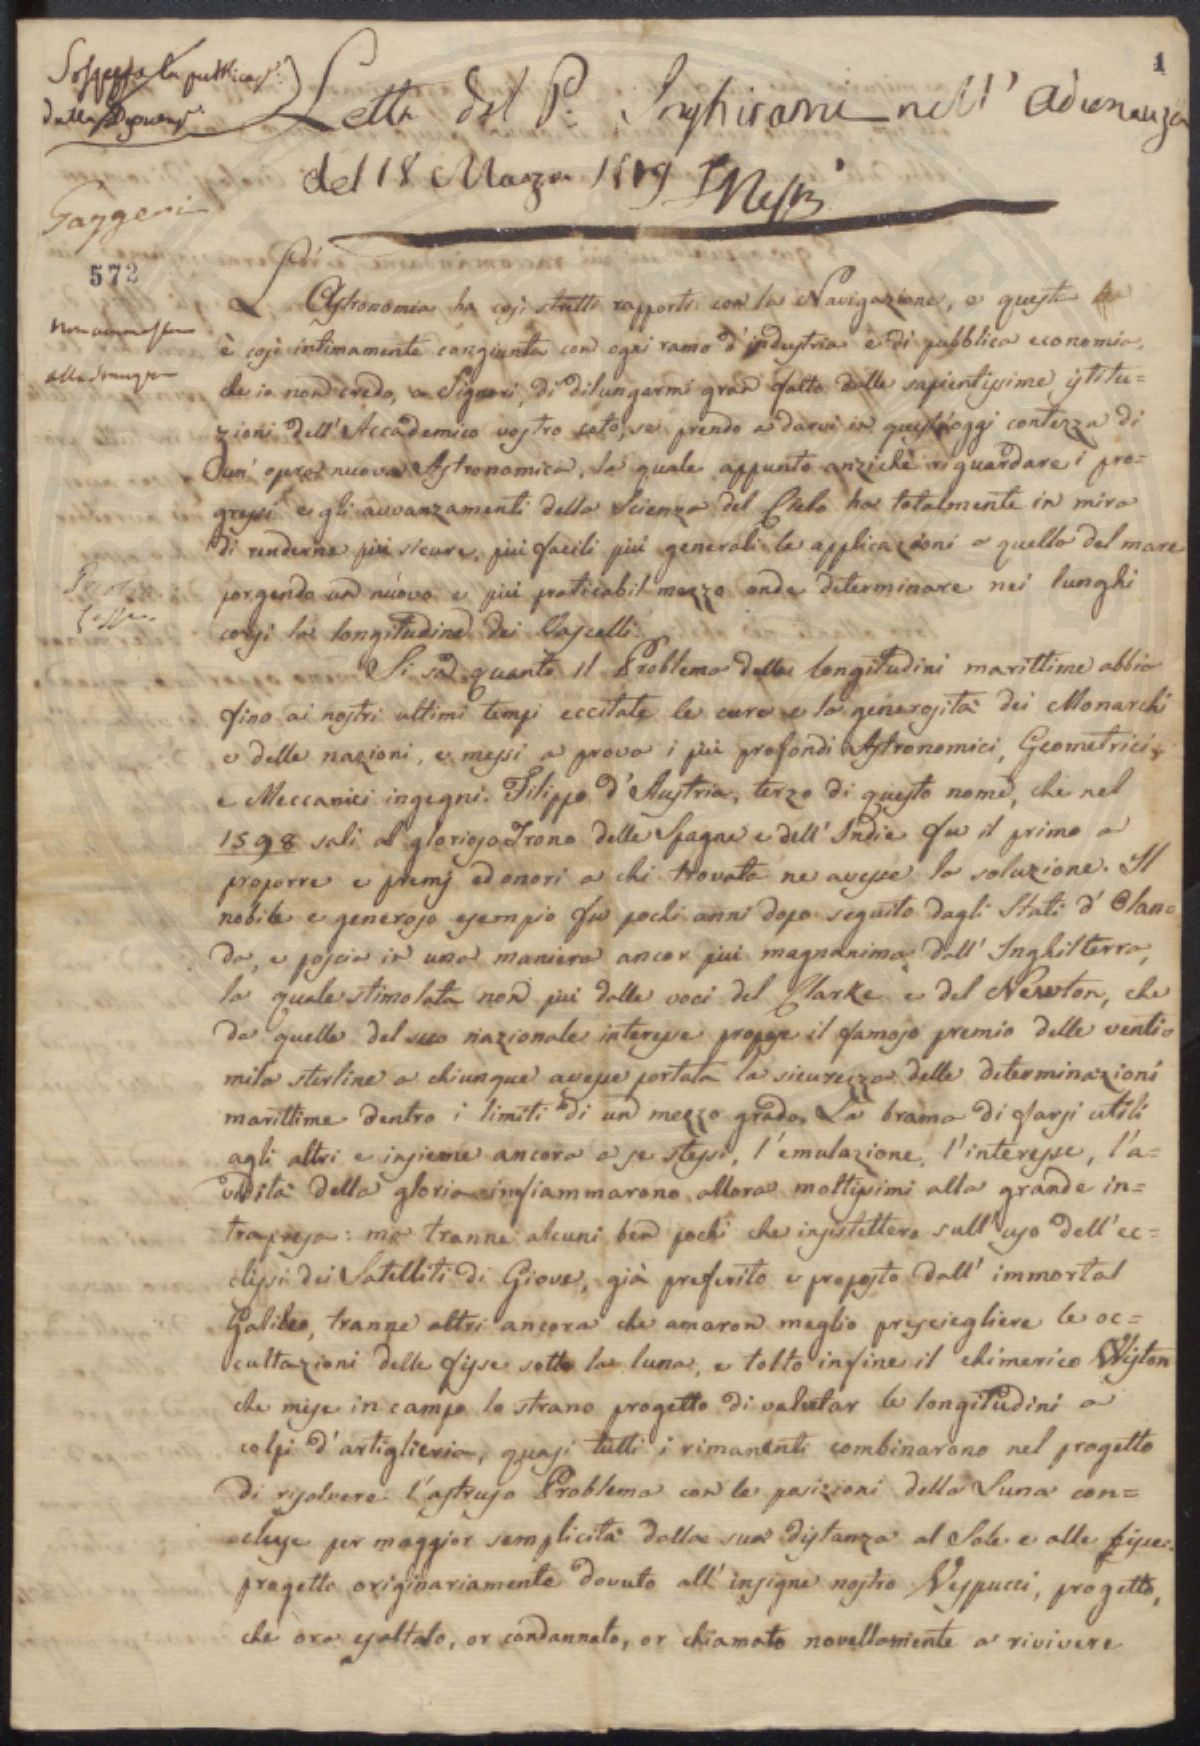 1
Sospesa la pubblicaz.
dalla
Letta dal P. Inghirami nell' Adunanza
del 18 Marzo 1819
Gazzeri
572
Non ammessa
alla stampa
L'Astronomia ha così stretti rapporti con la Navigazione, e questa
è così intimamente congiunta con ogni ramo d'industria e di pubblica economia,
che io non credo, o Signori, di dilungarmi gran fatto dalle sapientissime istitu=
zioni dell'Accademico vostro ceto, se prendo a darvi in quest'oggi contezza di
un' opra nuova Astronomica, la quale appunto anzichè riguardare i pro=
gressi e gli avvanzamenti della Scienza del Cielo ha totalmente in mira
di renderne più sicure, più facili più generali le applicazioni a quella del mare
porgendo un nuovo e più praticabil mezzo onde determinare nei lunghi
corsi la longitudine dei Vascelli.
Si sa quanto il Problema delle longitudini marittime abbia
fino ai nostri ultimi tempi eccitate le cure e la generosità dei Monarchi
e delle nazioni, e messi a prova i più profondi Astronomici, Geometrici,
e Meccanici ingegni. Filippo d'Austria, terzo di questo nome, che nel
1598 salì al glorioso Trono delle Spagne e dell' Indie fu il primo a
proporre e premj ed onori a chi trovata ne avesse la soluzione. Il
nobile e generoso esempio fu pochi anni dopo seguito dagli Stati d' Olan=
da, e poscia in una maniera ancor più magnanima dall' Inghilterra,
la quale stimolata non più dalle voci del Clarke e del Newton, che
da quelle del suo nazionale interesse propose il famoso premio delle venti=
mila sterline a chiunque avesse portata la sicurezza delle determinazioni
marittime dentro i limiti di un mezzo grado. La brama di farsi utili
agli altri e insieme ancora a se stessi, l'emulazione, l'interesse, l'a=
vidità della gloria infiammarono allora moltissimi alla grande in=
trapresa: ma tranne alcuni ben pochi che insistettero sull'uso dell'ec=
clissi dei Satelliti di Giove, già preferito e proposto dall' immortal
Galileo, tranne altri ancora che amaron meglio presciegliere le oc=
cultazioni delle fisse sotto la luna, e tolto infine il chimerico Wiston
che mise in campo lo strano progetto di valutar le longitudini a
colpi d'artiglieria, quasi tutti i rimanenti combinarono nel progetto
di risolvere l'astruso Problema con le posizioni della Luna con=
cluse per maggior semplicità dalla sua distanza al Sole e alle fisse:
progetto originariamente dovuto all' insigne nostro Vespucci, progetto,
che ora esaltato, or condannato, or chiamato novellamente a rivivere